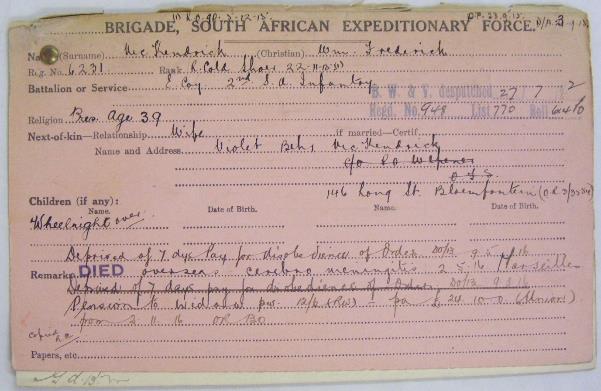 BRIGADE, SOUTH AFRICAN EXPEDITIONARY FORCE.
Name (Surname) Mc Kendrick (Christian) Wm. Frederick
Reg. No. 6231 Rank Cold Shoer
Battalion or Service E Coy 2nd S.A. Infantry
B. W. & V. despatched 27/7/ 2
Regd. No. 948 List 770 Roll
Religion Pres. Age 39
Next-of-kin—Relationship Wife if married—Certif.
Name and Address Violet Mc Kendrick
c/o P.O. Wepener
O.F.S.
146 Long St. Bloemfontein
Children (if any):
Name. Date of Birth. Name. Date of Birth.
Wheelwright over
Deprived of 7 dys Pay for disobedience of Order DO/13 9 5 16
Remarks DIED overseas cerebro meningitis 2 5 16 Marseilles
Deprived of 7 days pay for disobedience of Order, DO/13 9 5 16
Pension to Widow £24 10 0 (Union)
from 2 11 16
Papers, etc.